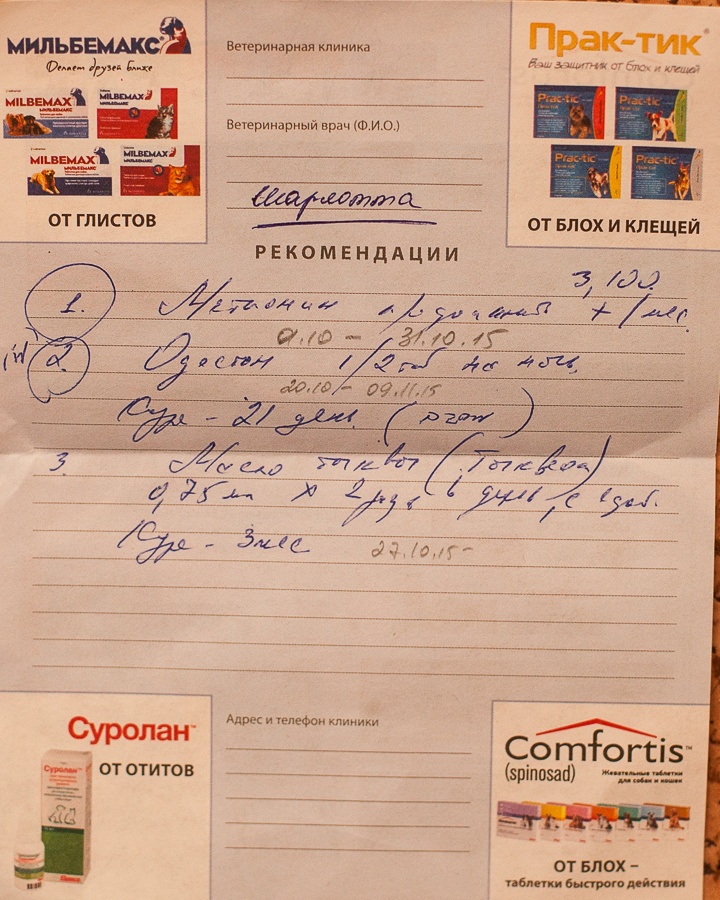 МИЛЬБЕМАКС
Делает друзей ближе
MILBEMAX
МИЛЬБЕМАКС
MILBEMAX
МИЛЬБЕМАКС
MILBEMAX
МИЛЬБЕМАКС
MILBEMAX
МИЛЬБЕМАКС
ОТ ГЛИСТОВ
Ветеринарная клиника
Ветеринарный врач (Ф.И.О.)
Шарлотта
Прак-тик®
Ваш защитник от блох и клещей
Prac-tic
Prac-tic
Prac-tic
Prac-tic
ОТ БЛОХ И КЛЕЩЕЙ
РЕКОМЕНДАЦИИ
3,100
1. Метионин продолжить + 1 мес.
31.10.15
2. Одестон 1/2 таб на ночь
20.10 - 09.11.15
Курс - 21 день
3. Масло тыквы (Тыквеол)
0,75 мл х 2 раза в день, с едой.
Курс - 3 мес 27.10.15-
Суролан™
Суролан
ОТ ОТИТОВ
Адрес и телефон клиники
Comfortis™
(spinosad)
Жевательные таблетки
для собак и кошек
ОТ БЛОХ –
таблетки быстрого действия